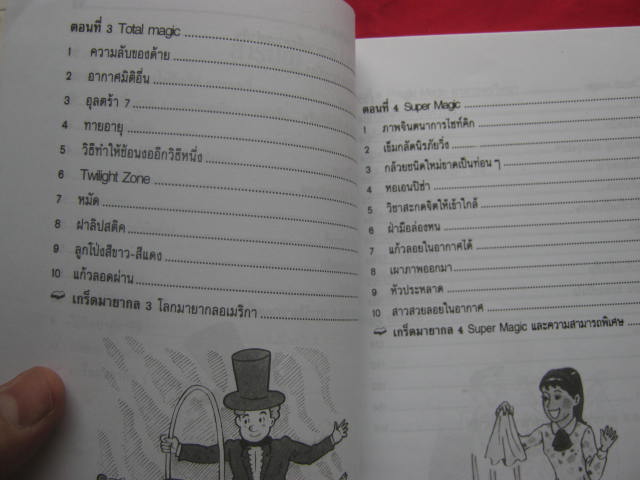 ตอนที่ 3 Total magic
1 ความลับของด้าย
2 อากาศมิติอื่น
3 อุลตร้า 7
4 ทายอายุ
5 วิธีทำให้ช้อนงออีกวิธีหนึ่ง
6 Twilight Zone
7 หมัด
8 ฝาลิปสติค
9 ลูกโป่งสีขาว-สีแดง
10 แก้วลอดผ่าน
เกร็ดมายากล 3 โลกมายากลอเมริกา
ตอนที่ 4 Super Magic
1 ภาพจินตนาการไซท์คิก
2 เข็มกลัดนิรภัยวิ่ง
3 กล้วยชนิดใหม่ขาดเป็นท่อนๆ
4 หอเอนปิซ่า
5 วิชาสะกดจิตให้เข้าใกล้
6 ฝ่ามือล่องหน
7 แก้วลอยในอากาศได้
8 เผาภาพออกมา
9 หัวประหลาด
10 สาวสวยลอยในอากาศ
เกร็ดมายากล 4 Super Magic และความสามารถพิเศษ